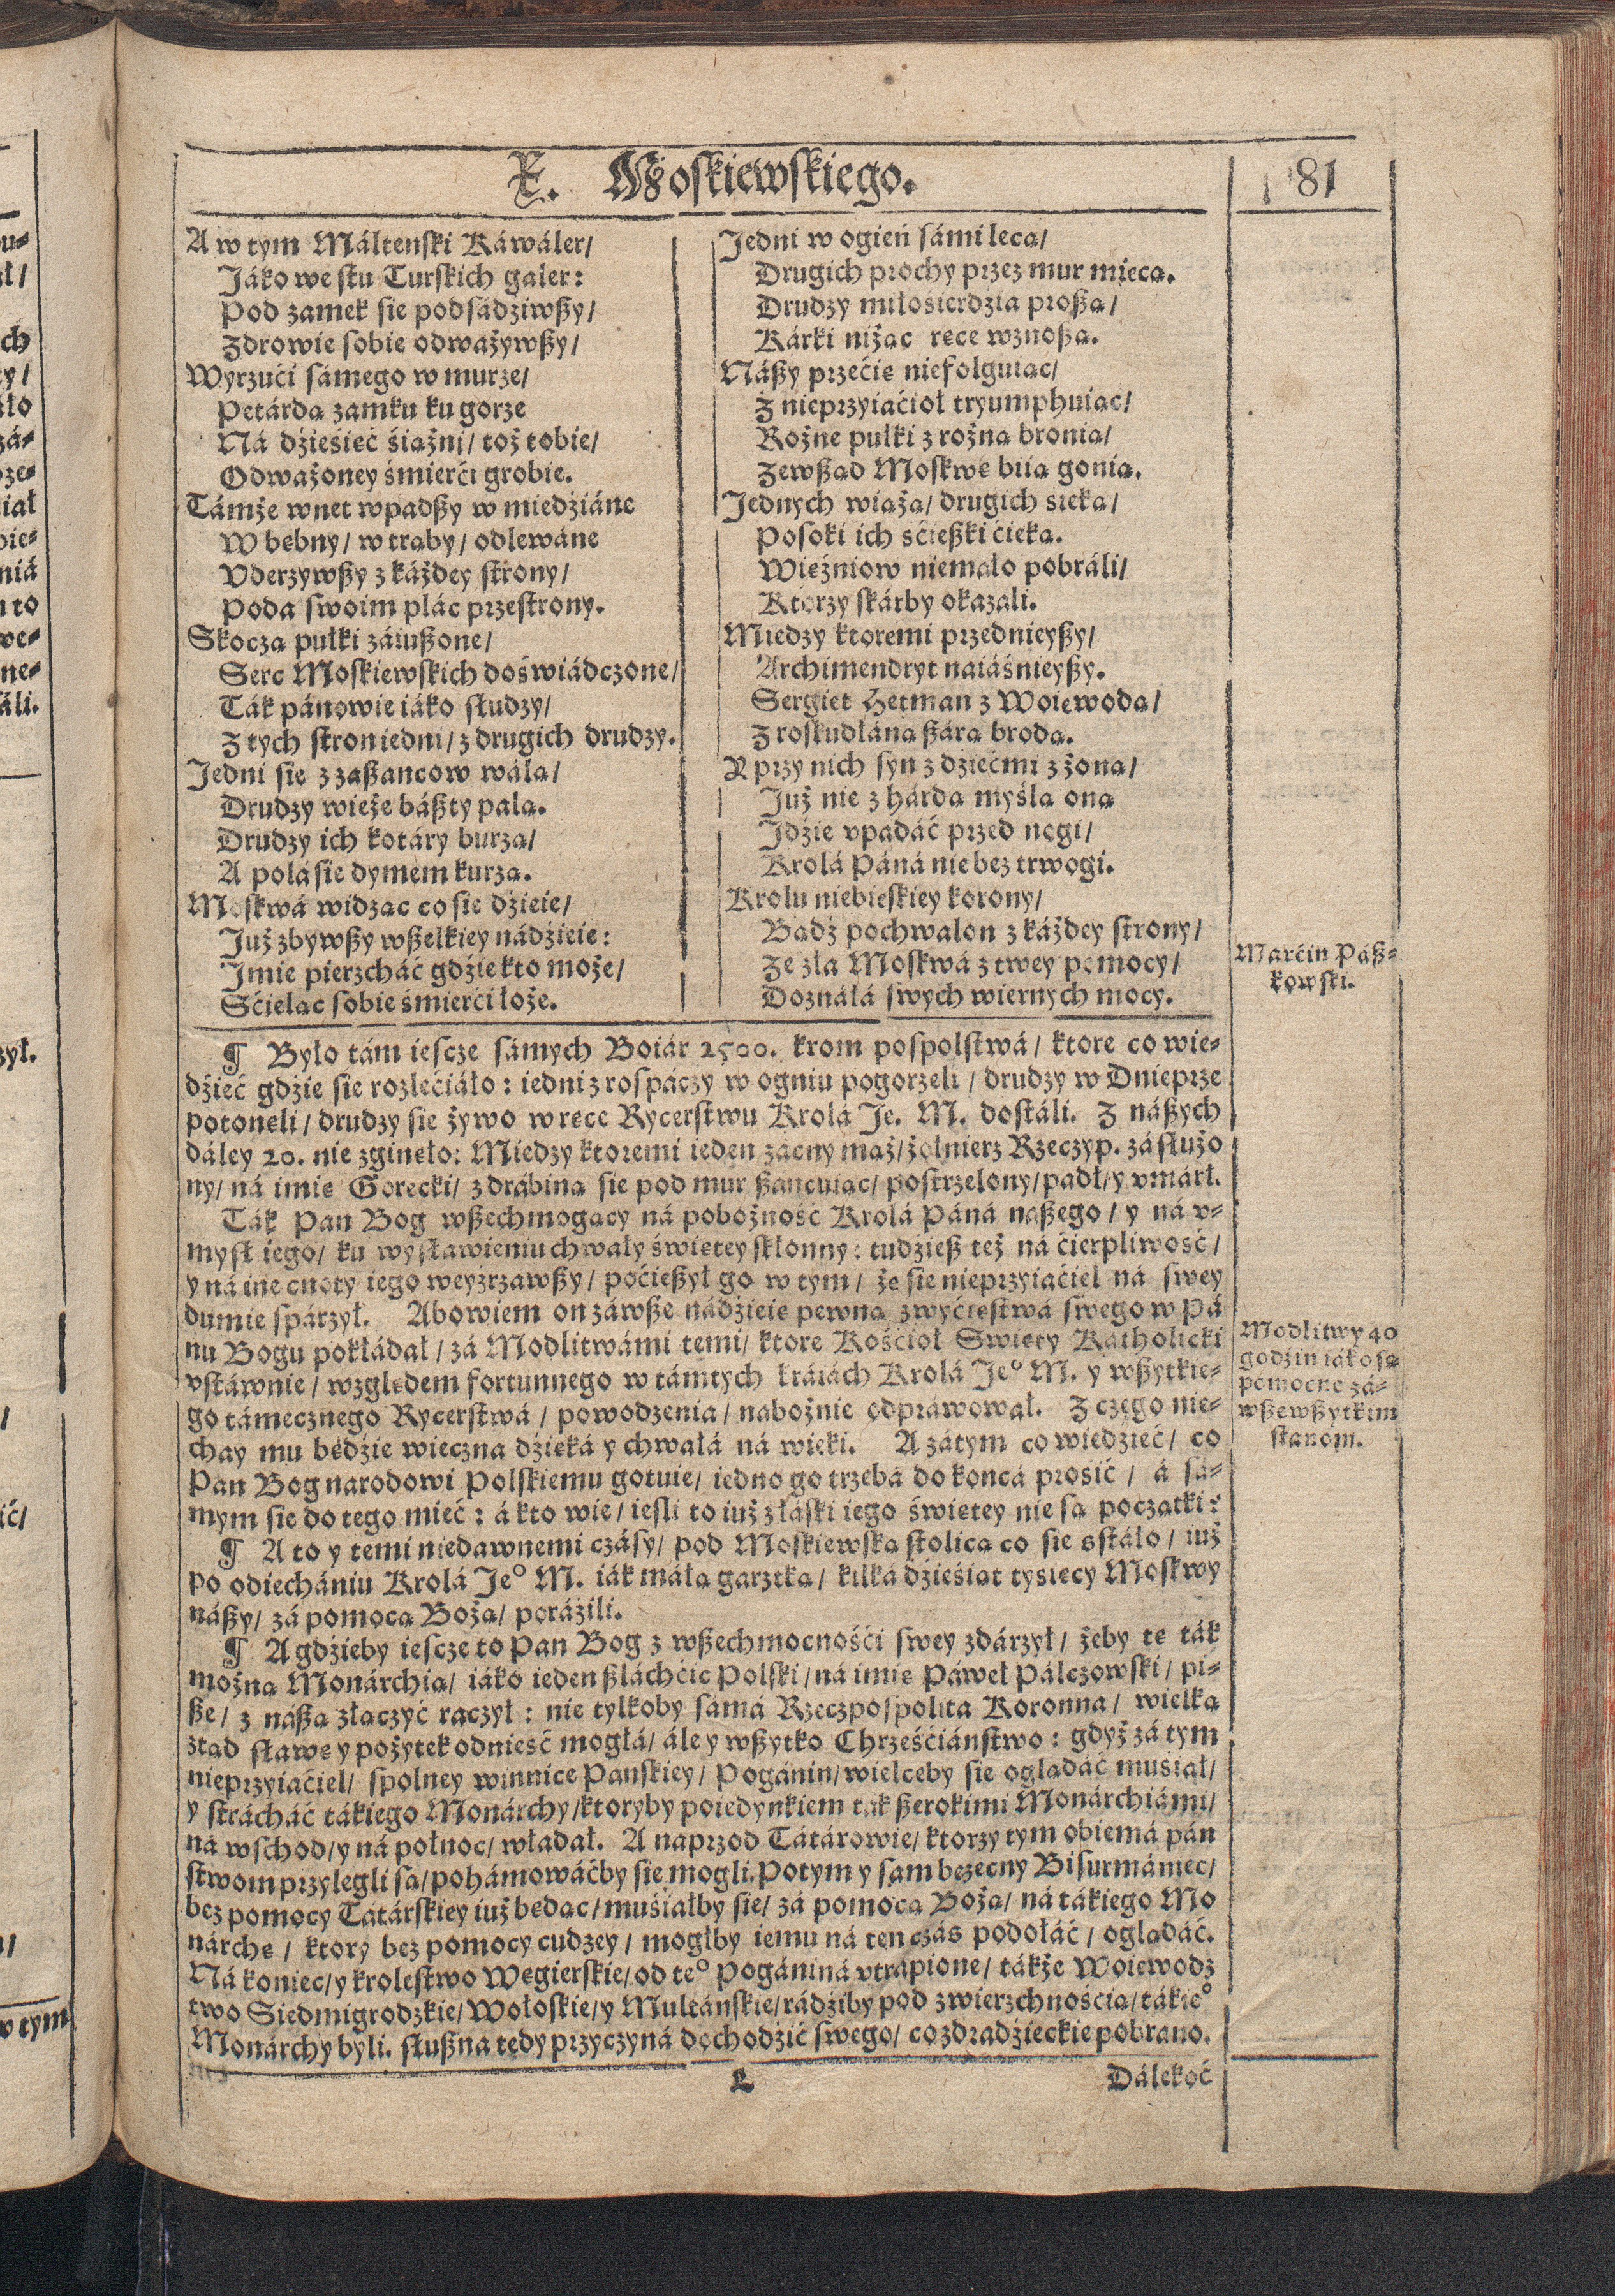 X. Moskiewskiego.
81
A w tym Máltenski Káwáler/
Jáko we stu Turskich galer:
Pod zamek sie podsádźiwßy/
Zdrowie sobie odważywßy/
Wyrzući sámego w murze/
Petárda zamku ku gorze
Ná dźieśieć śiażni/ toż tobie/
Odważoney śmierći grobie.
Támże wnet wpadßy w miedźiáne
W bebny/ w traby/ odlewáne
Vderzywßy z káżdey strony/
Poda swoim plác przestrony.
Skocza pułki záiußone/
Serc Moskiewskich doświádczone/
Ták pánowie iáko słudzy/
Z tych stron iedni/ z drugich drudzy.
Jedni sie z zaßancow wála/
Drudzy wieże báßty pala.
Drudzy ich kotáry burza/
A pola sie dymem kurza.
Moskwá widzac co sie dźieie/
Już zbywßy wßelkiey nádźieie:
Jmie pierzcháć gdźie kto może/
Sćielac sobie śmierći łoże.
Jedni w ogień sámi leca/
Drugich prochy przez mur mieca.
Drudzy miłośierdzia proßa/
Kárki niżac rece wznoßa.
Náßy przećie niefolguiac/
Z nieprzyiaćioł tryumphuiac/
Rożne pułki z rożna bronia/
Zewßad Moskwe biia gonia.
Jednych wiaża/ drugich sieka/
Posoki ich sćießki ćieka.
Wieźniow niemało pobráli/
Ktorzy skárby okazali.
Miedzy ktoremi przednieyßy/
Archimendryt naiáśnieyßy.
Sergiet Hetman z Woiewoda/
Z roskudłána ßára broda.
Y przy nich syn z dźiećmi z żona/
Już nie z hárda myśla ona
Jdźie vpadáć przed nogi/
Krolá Páná nie bez trwogi.
Krolu niebieskiey korony/
Badź pochwalon z káżdey strony/
Ze zła Moskwá z twey pomocy/
Doznáłá swych wiernych mocy.
Marćin Páß-
kowski.
¶ Było tám iescze sámych Boiár 2500. krom pospolstwá/ ktore co wie-
dźieć gdźie sie rozlećiáło: iedni z rospáczy w ogniu pogorzeli/ drudzy w Dnieprze
potoneli/ drudzy sie żywo w rece Rycerstwu Krolá Je. M. dostáli. Z náßych
dáley 20. nie zgineło: Miedzy ktoremi ieden zacny maż/ żołnierz Rzeczyp. zásłużo
ny/ ná imie Gorecki/ z drábina sie pod mur ßancuiac/ postrzelony/ padł/ y vmárł.
Ták Pan Bog wßechmogacy ná pobożność Krolá Páná naßego/ y ná v-
mysł iego/ ku wysławieniu chwały świetey skłonny: tudźieß też ná ćierpliwość/
y ná ine cnoty iego weyźrzawßy/ poćießył go w tym/ że sie nieprzyiaćiel ná swey
dumie spárzył. Abowiem on záwße nádźieie pewna zwyćiestwá swego w Pá
nu Bogu pokłádał/ zá Modlitwámi temi/ ktore Kośćioł Swiety Katholicki
vstáwnie/ wzgledem fortunnego w támtych kráiách Krolá Jeº M. y wßytkie-
go támecznego Rycerstwá/ powodzenia/ nabożnie odpráwował. Z czego nie-
chay mu bedźie wieczna dźieká y chwałá ná wieki. A zátym co wiedźieć/ co
Pan Bog narodowi Polskiemu gotuie/ iedno go trzebá do koncá prosić/ á sá-
mym sie do tego mieć: á kto wie/ iesli to iuż z łáski iego świetey nie sa poczatki:
Modlitwy 40
godźin iáko sa
pomocne zá-
wße wßytkim
stanom.
¶ A to y temi niedawnemi czásy/ pod Moskiewska stolica co sie sstáło/ iuż
po odiechániu Krolá Jeº M. iák máła garztka/ kilká dźieśiat tysiecy Moskwy
náßy/ zá pomoca Boża/ poráźili.
¶ A gdźieby iescze to Pan Bog z wßechmocnośći swey zdárzył/ żeby te ták
można Monárchia/ iáko ieden ßláchćic Polski/ ná imie Páweł Pálczowski/ pi-
ße/ z náßa złaczyć raczył: nie tylkoby sámá Rzeczpospolita Koronna/ wielka
ztad sławe y pożytek odnieść mogłá/ ále y wßytko Chrześćiáństwo: gdyż zá tym
nieprzyiaćiel/ spolney winnice Panskiey/ Pogánin/ wielceby sie ogladáć muśiał/
y strácháć tákiego Monárchy/ ktoryby poiedynkiem tak ßerokimi Monárchiámi/
ná wschod/ y ná połnoc/ władał. A naprzod Tátárowie/ ktorzy tym obiemá pán
stwom przylegli sa/ pohámowáćby sie mogli. Potym y sam bezecny Bisurmániec/
bez pomocy Tatárskiey iuż bedac/ muśiałby sie/ zá pomoca Boża/ ná tákiego Mo
nárche/ ktory bez pomocy cudzey/ mogłby iemu ná ten czás podołáć/ ogladáć.
Ná koniec/ y krolestwo Wegierskie/ od teº Pogániná vtrapione/ tákże Woiewodz
two Siedmigrodzkie/ Wołoskie/ y Multánskie/ rádźiby pod zwierzchnośćia/ tákieº
Monárchy byli. słußna tedy przyczyná dochodźić swego/ co zdradźieckie pobrano.
L
Dálekoć